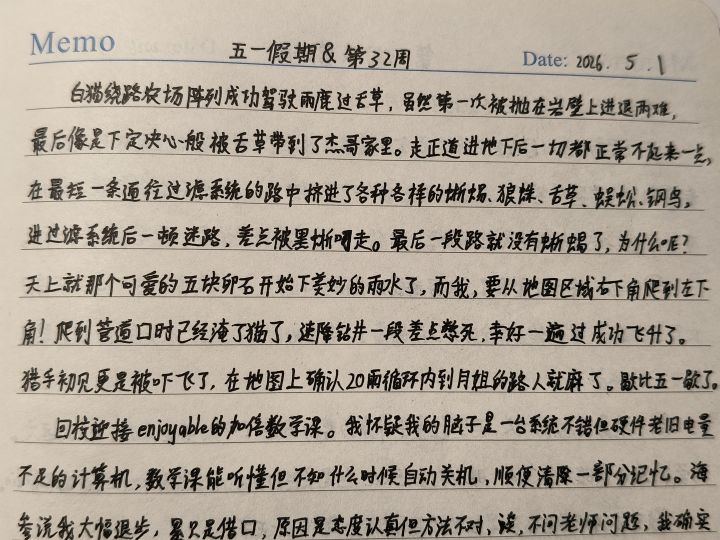 Memo 五一假期&第32周 Date: 2026. 5. 1
白猫绕路农场阵列成功驾驶雨鹿过舌草，虽然第一次被抛在岩壁上进退两难，
最后像是下定决心一般被舌草带到了杰哥家里。走正道进地下后一切都正常不起来一点，
在最短一条通往过滤系统的路中挤进了各种各样的蜥蜴、狼蛛、舌草、蜈蚣、钢鸟，
进过滤系统后一顿迷路，差点被黑蜥叼走。最后一段路就没有蜥蜴了，为什么呢？
天上就那个可爱的五块卵石开始下美妙的雨水了，而我，要从地图区域右下角爬到左下
角！爬到管道口时已经淹了猫了，速降钻井一段差点憋死，幸好一遍过成功飞升了。
猎手初见更是被吓飞了，在地图上确认20雨循环内到月姐的路人就麻了。歇比五一歇了。
回校迎接enjoyable的加倍数学课。我怀疑我的脑子是一台系统不错但硬件老旧电量
不足的计算机，数学课能听懂但不知什么时候自动关机，顺便清除一部分记忆。海
参说我大幅退步，累只是借口，原因是态度认真但方法不对，诶，不问老师问题，我确实